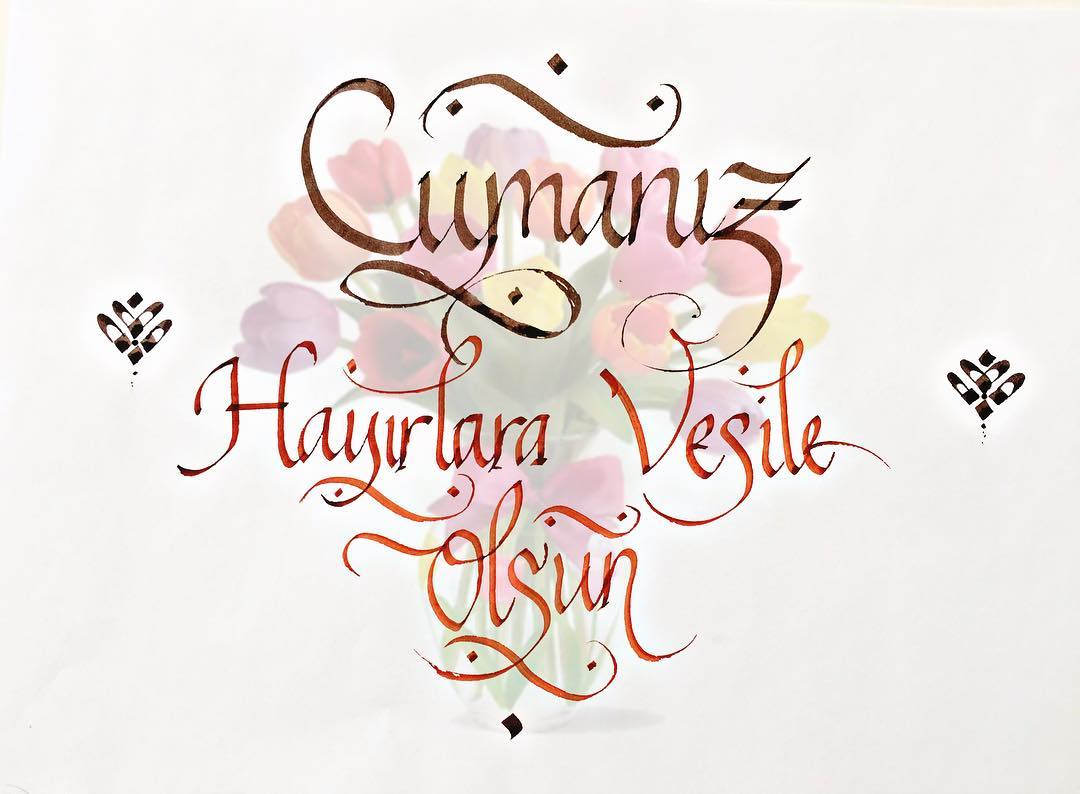 Cumanız
Hayırlara Vesile
Olsun